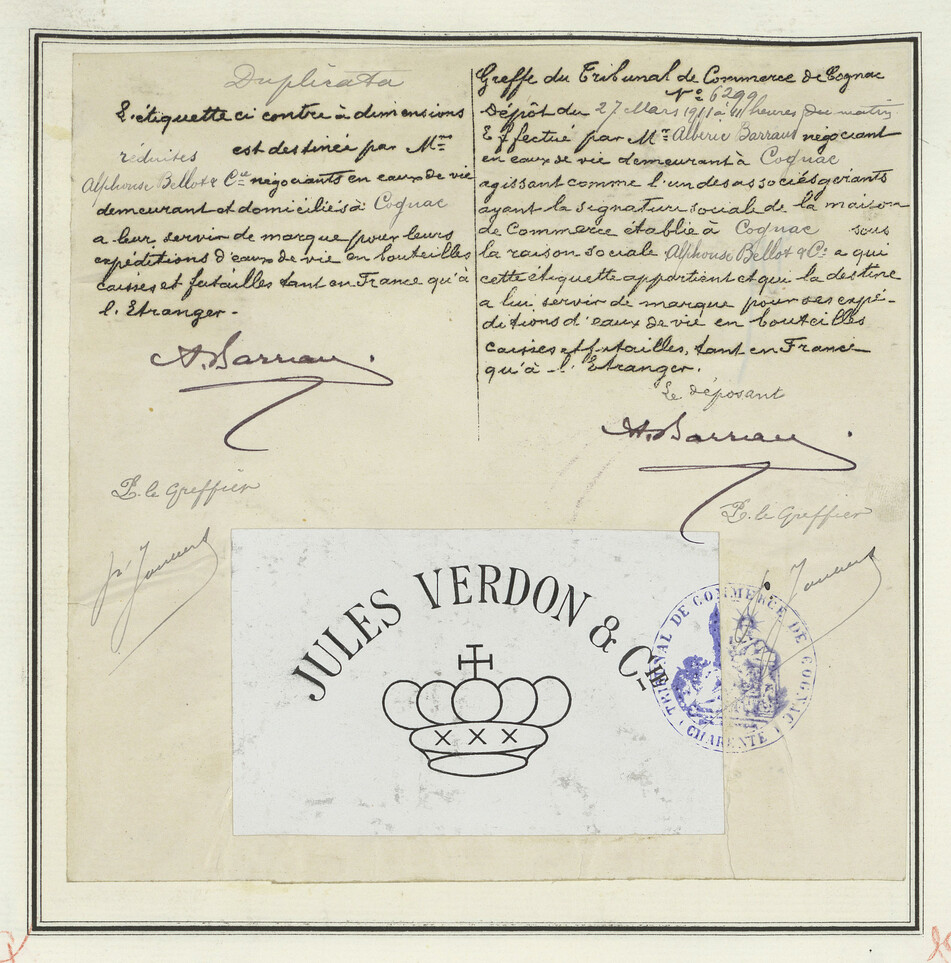 Duplicata
L'étiquette ci contre à dimensions
réduites est destinée par Mrs
Alphonse Bellot & Cie négociants en eaux de vie
demeurant et domiciliés à Cognac
a leur servir de marque pour leurs
expéditions d'eaux de vie en bouteilles
caisses et futailles tant en France qu'à
l'Etranger.
A. Barriau
P. le Greffier
Greffe du Tribunal de Commerce de Cognac
No 6299
Dépôt du 27 Mars 1911 à 11 heures du matin
Effectué par Mr Alberic Barraud négociant
en eaux de vie demeurant à Cognac
agissant comme l'un des associés gérants
ayant la signature sociale de la maison
de Commerce établie à Cognac sous
la raison sociale Alphonse Bellot & Cie a qui
cette étiquette appartient et qui la destine
a lui servir de marque pour ses expé-
ditions d'eaux de vie en bouteilles
caisses et futailles, tant en France
qu'à l'Etranger.
Le déposant
A. Barriau
P. le Greffier
JULES VERDON & Cie
X X X
TRIBUNAL DE COMMERCE DE COGNAC
CHARENTE